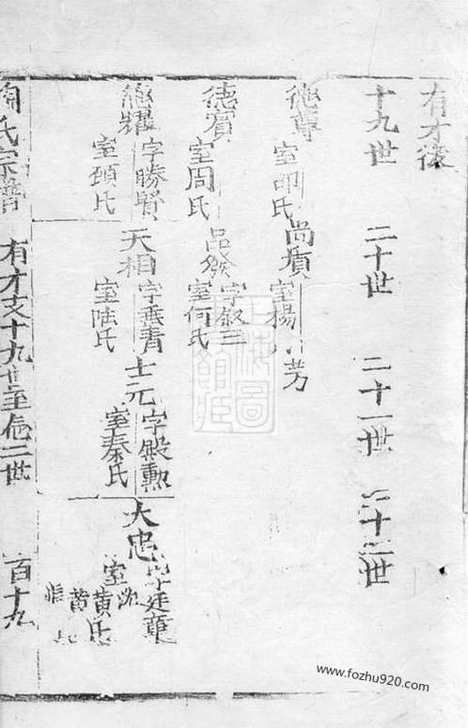 有才後
十九世 二十世 二十一世 二十二世
德尊 室邵氏 尚質 室楊 芳
德賓 室周氏 品發 字叙三 室何氏
德耀 字勝賢 室顧氏 天相 字垂青 室陆氏 士元 字殿勲 室秦氏 大忠 字廷章 室沈 黄氏 黄
氏宗譜 有才支十九世至廿二世 百十九
www.fozhu920.com